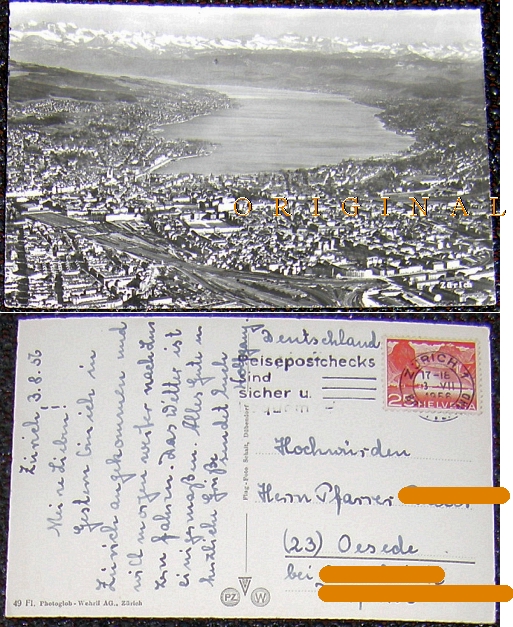 ORIGINAL
Zürich
Zürich 3.8.56
Meine Lieben!
Gestern bin ich in
Zürich angekommen und
will morgen weiter nach Lu
zern fahren. Das Wetter ist
einigermaßen. Alles Gute u.
herzliche Grüße sendet Euch
Wolfgang.
Flug-Foto Schalt, Dübendorf
Deutschland
eisepostchecks
ind
sicher u.
ZÜRICH
17-18
VII
1956
HELVETIA
Hochwürden
Herrn Pfarrer
(23) Oesede
bei
PZ W
49 Fl. Photoglob-Wehrli AG., Zürich